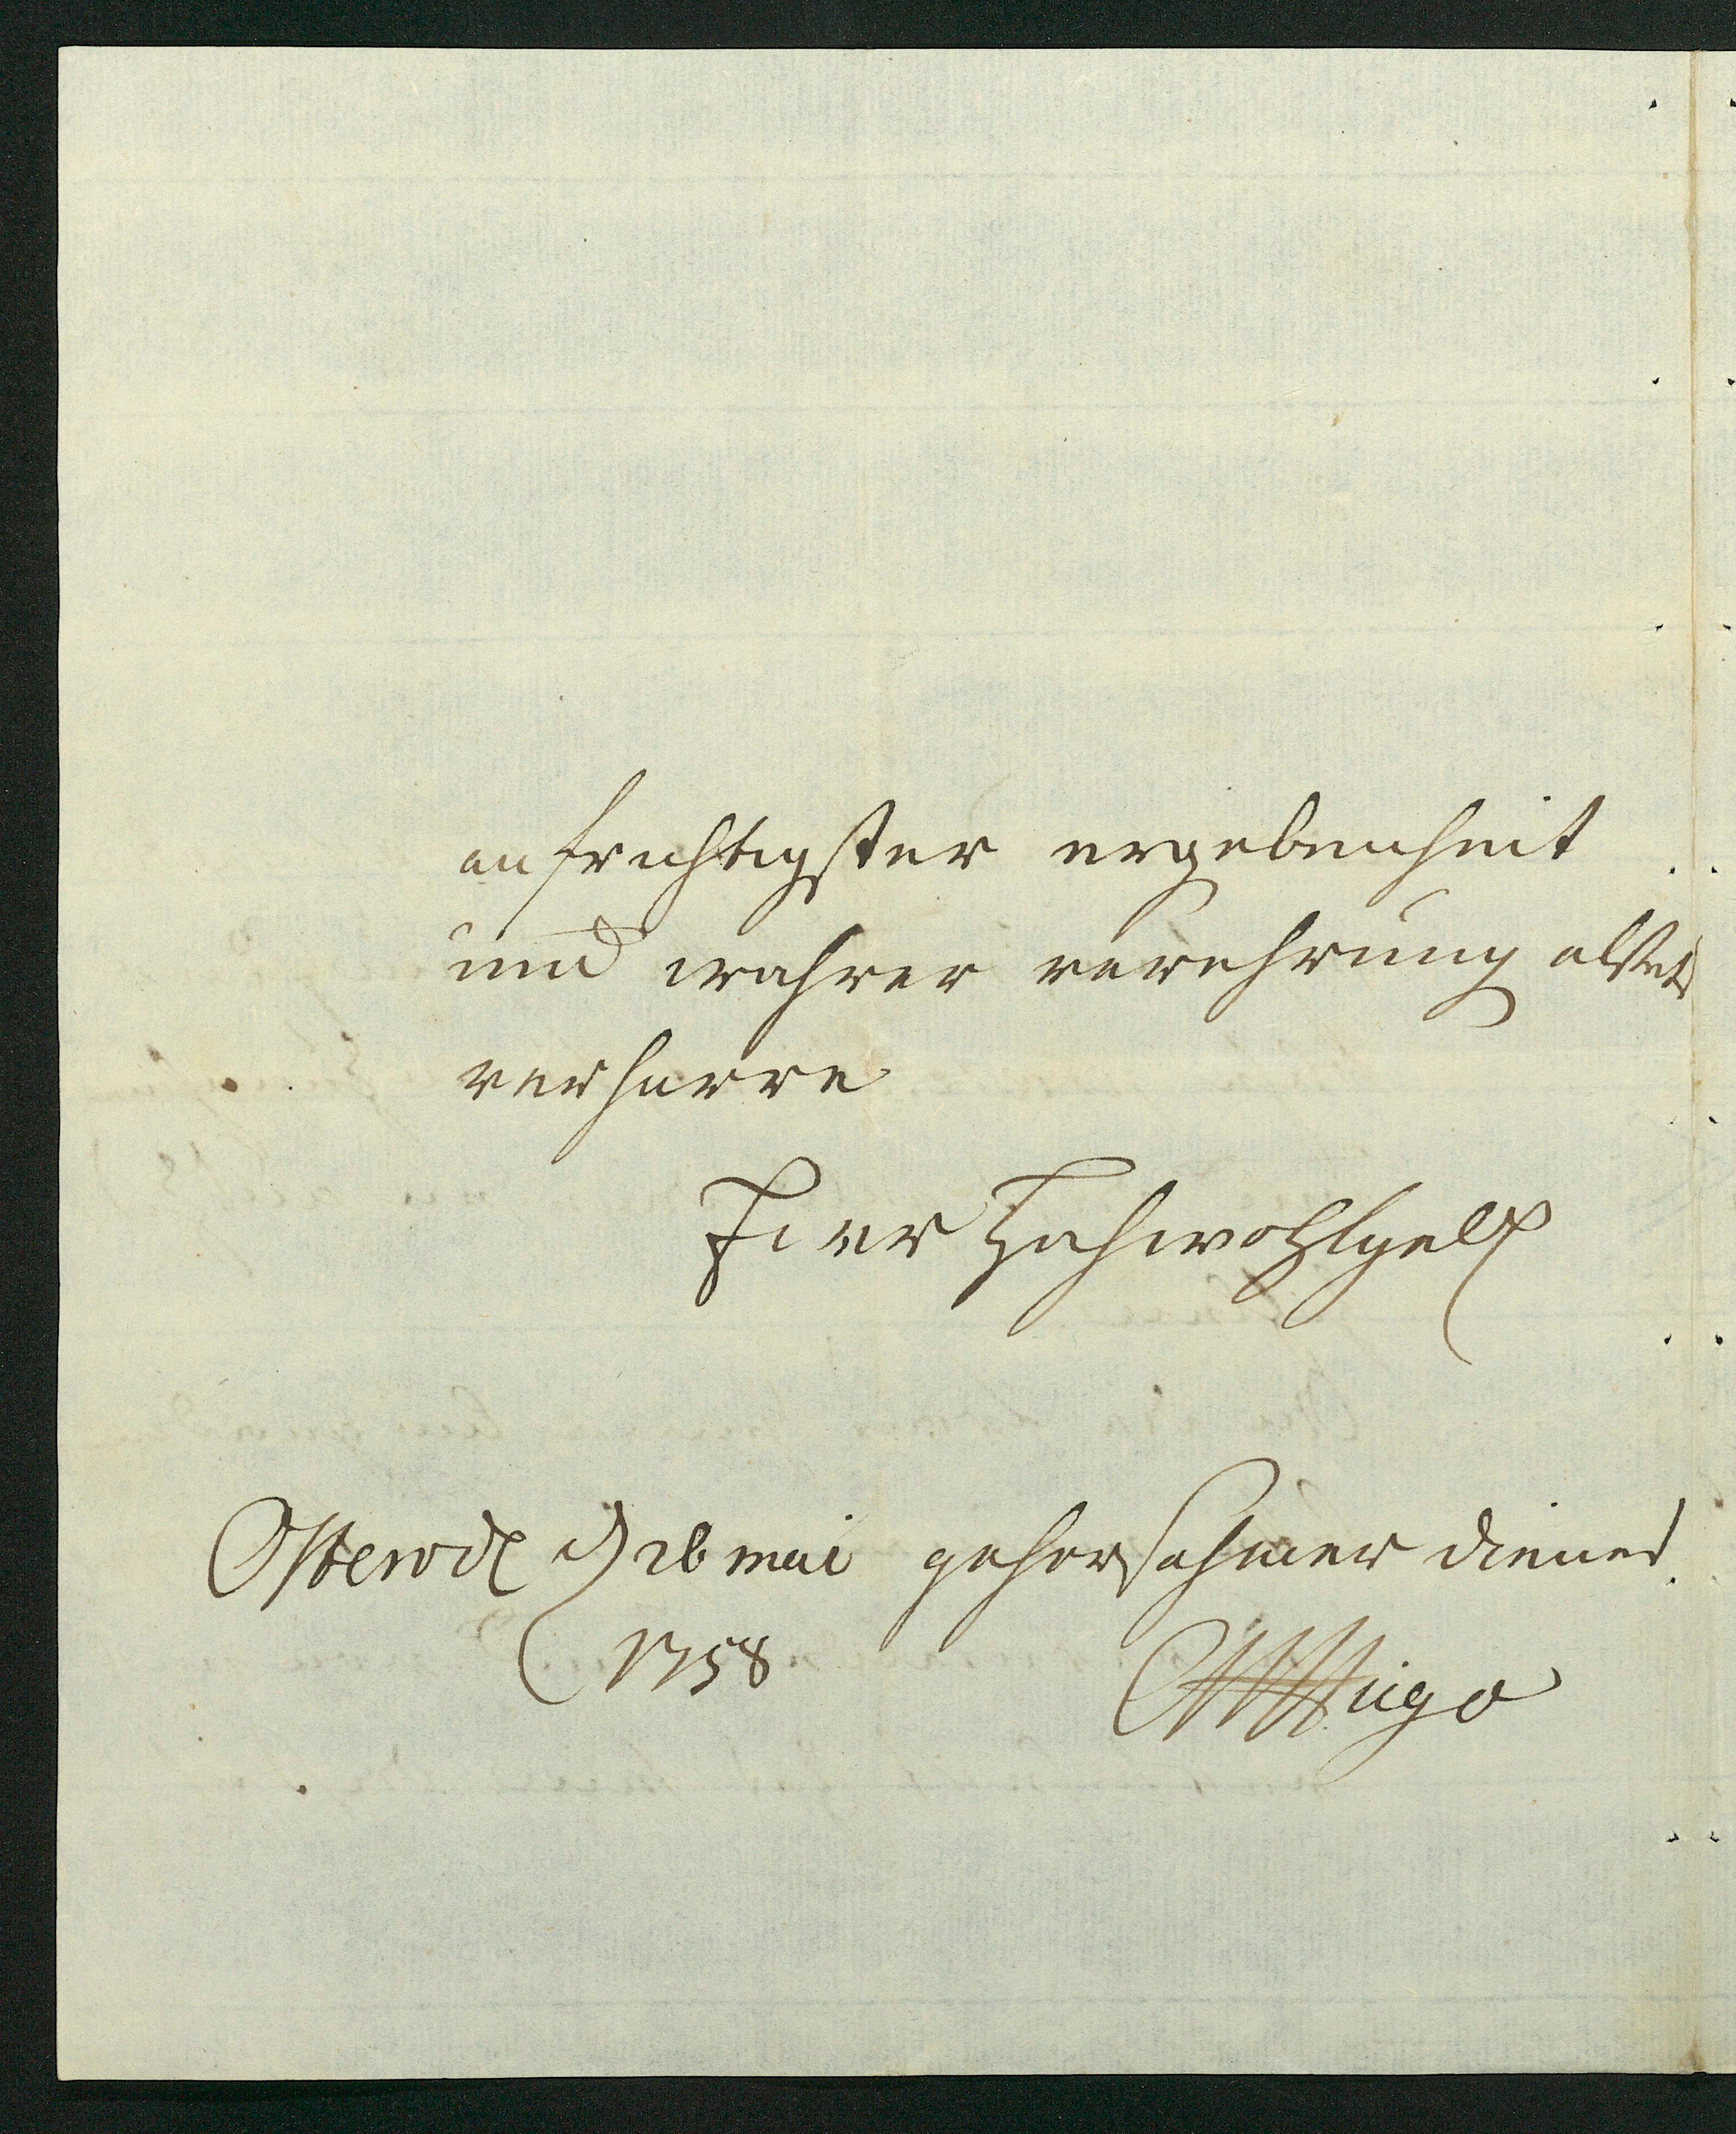 aufrichtigster ergebenheit
und wahrer verehrung alstets
verharre
Euer Hochwohlgeb
Osterode d 26 mai gehorsahmer diener
1758 Hugo